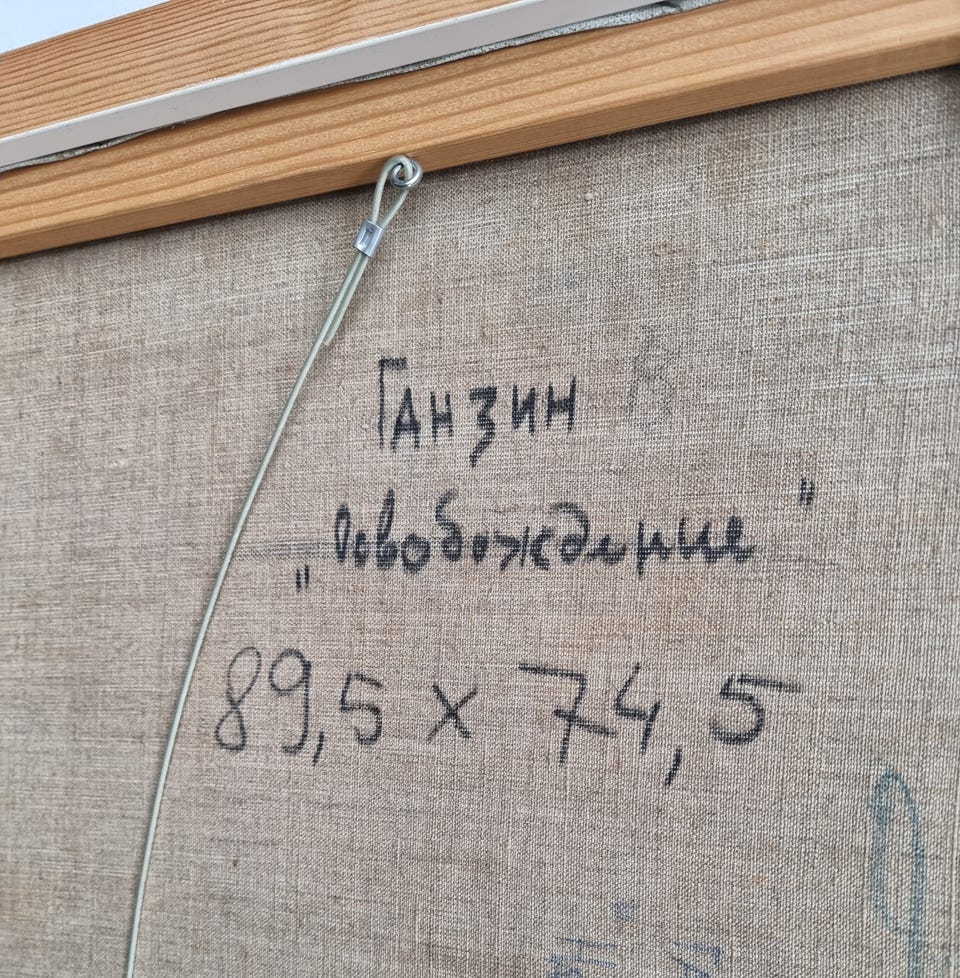 Ганзин
„Освобождение”
89,5 x 74,5